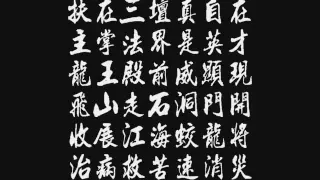 扶在三壇真自在
主掌法界是英才
龍王殿前威顯現
飛山走石洞門開
收展江海蛟龍將
治病救苦速消災